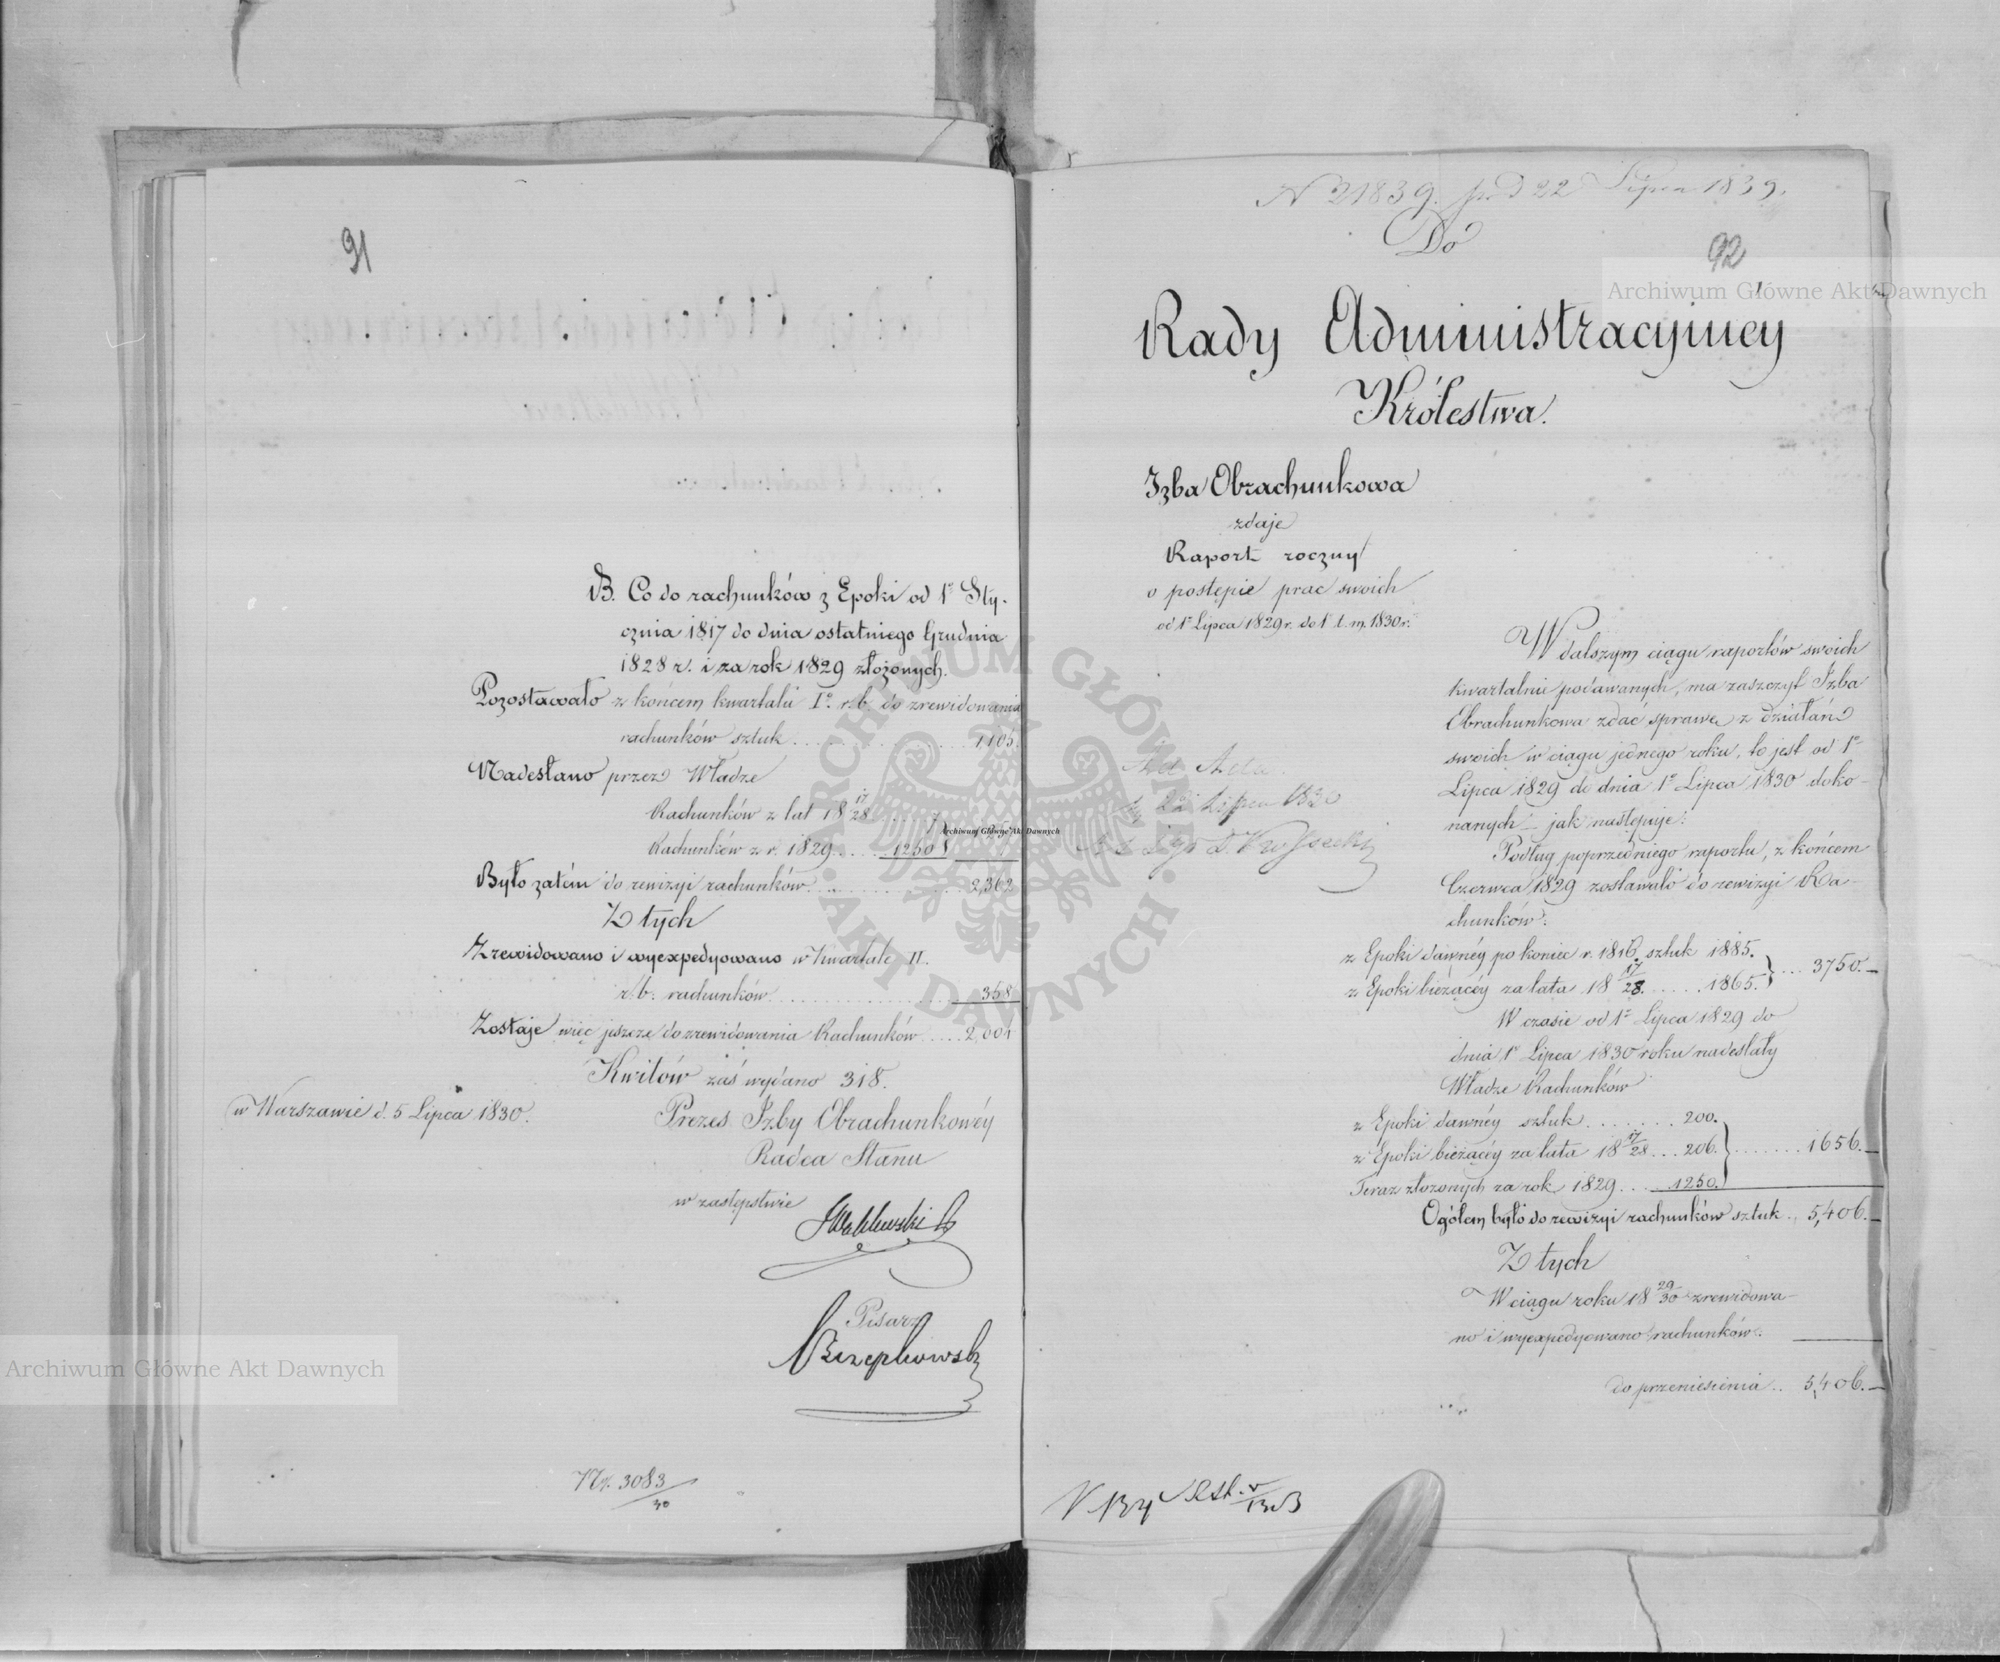 91
B. Co do rachunków z Epoki od 1º Sty-
cznia 1817 do dnia ostatniego Grudnia
1828 r. i za rok 1829 złożonych.
Pozostawało z końcem kwartału Iº r. b. do zrewidowania
rachunków sztuk . . . . . 1105.
Nadesłano przez Władze
Rachunków z lat 18 17/28 . . . 7
Rachunków z r. 1829 . . . . 1250
Było zatém do rewizyi rachunków . . . . . 2,362
Z tych
Zrewidowano i wyexpedyowano w Kwartale II.
r. b. rachunków . . . . . 358
Zostaje więc jeszcze do zrewidowania Rachunków . . . . . 2,004
Kwitów zaś wydano 318.
w Warszawie d. 5 Lipca 1830.
Prezes Izby Obrachunkowéy
Radca Stanu
w zastępstwie
Pisarz
Nr. 3083/30
N 21839. pr. d 22 Lipca 1839.
Do
92
Rady Administracyjney
Królestwa.
Izba Obrachunkowa
zdaje
Raport roczny
o postępie prac swoich
od 1º Lipca 1829 r. do 1º t. m. 1830 r.
W dalszym ciągu raportów swoich
kwartalnie podawanych, ma zaszczyt Izba
Obrachunkowa zdać sprawę z działań
swoich w ciągu jednego roku, to jest od 1º
Lipca 1829 do dnia 1º Lipca 1830 doko-
nanych – jak następuje:
Podług poprzedniego raportu, z końcem
Czerwca 1829 zostawało do rewizyi Ra-
chunków:
z Epoki dawnéy po koniec r. 1816 sztuk 1885.
z Epoki bieżącéy za lata 18 17/28 . . . . . 1865. } . . . 3750.
W czasie od 1º Lipca 1829 do
dnia 1º Lipca 1830 roku nadesłały
Władze Rachunków
z Epoki dawnéy sztuk . . . . . 200.
z Epoki bieżącéy za lata 18 17/28 . . . 206. } . . . . . 1656.
Teraz złożonych za rok 1829 . . . 1250.
Ogółem było do rewizyi rachunków sztuk . . 5,406.
Z tych
W ciągu roku 18 29/30 zrewidowa-
no i wyexpedyowano rachunków.
do przeniesienia . . 5,406.
Ad Acta.
Lipca 1830
Archiwum Główne Akt Dawnych
Archiwum Główne Akt Dawnych
Archiwum Główne Akt Dawnych
ARCHIWUM GŁÓWNE
AKT DAWNYCH